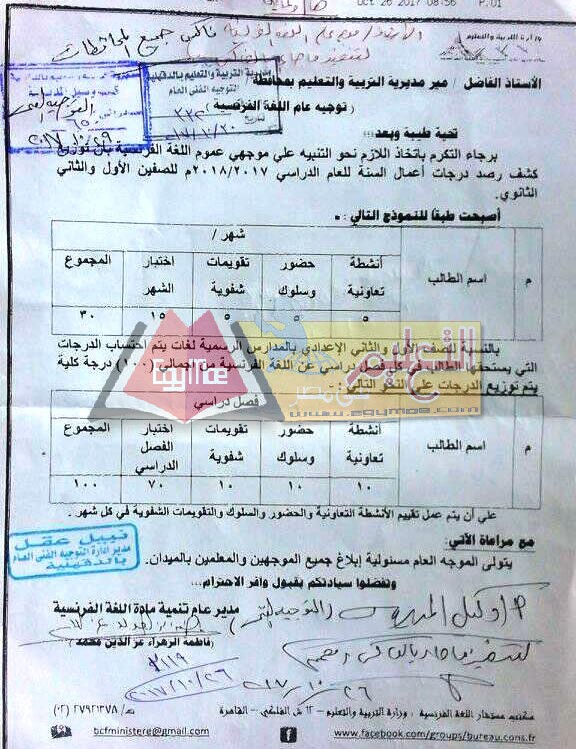 Oct 26 2017 08:56 P.01
وزارة التربية والتعليم
ناكس جميع المحافظات
الأستاذ الفاضل / مدير مديرية التربية والتعليم بمحافظة
( توجيه عام اللغة الفرنسية )
مديرية التربية والتعليم بالدقهلية
التوجيه الفنى العام
تحية طيبة وبعد،،،
برجاء التكرم باتخاذ اللازم نحو التنبيه علي موجهي عموم اللغة الفرنسية بأن توزيع
كشف رصد درجات أعمال السنة للعام الدراسي ٢٠١٨/٢٠١٧م للصفين الأول والثاني
الثانوي.
أصبحت طبقاً للنموذج التالي :-
م
اسم الطالب
شهر /
أنشطة تعاونية
حضور وسلوك
تقويمات شفوية
اختبار الشهر
المجموع
٥
٥
٥
١٥
٣٠
بالنسبة للصف الأول والثاني الإعدادي بالمدارس الرسمية لغات يتم احتساب الدرجات
التي يستحقها الطالب في كل فصل دراسي عن اللغة الفرنسية من إجمالي (١٠٠) درجة كلية
يتم توزيع الدرجات علي النحو التالي :-
م
اسم الطالب
فصل دراسي
أنشطة تعاونية
حضور وسلوك
تقويمات شفوية
اختبار الفصل الدراسي
المجموع
١٠
١٠
١٠
٧٠
١٠٠
التعليم
في مصر
EGYMOE
www.egymoe.com
علي أن يتم عمل تقييم الأنشطة التعاونية والحضور والسلوك والتقويمات الشفوية في كل شهر .
مع مراعاة الآتي:
يتولى الموجه العام مسئولية إبلاغ جميع الموجهين والمعلمين بالميدان.
وتفضلوا سيادتكم بقبول وافر الاحترام...
نبيل عقل
مدير ادارة التوجيه الفنى العام
بالدقهلية
مدير عام تنمية مادة اللغة الفرنسية
( فاطمة الزهراء عز الدين محمد )
٢٠١٧/١٠/٢٦
مكتب مستشار اللغة الفرنسية - وزارة التربية والتعليم - ١٢ ش الفلكي - القاهرة
ت/ ٢٧٩٢١٣٧٨ (٠٢)
www.facebook.com/groups/bureau.cons.fr
bcfministere@gmail.com